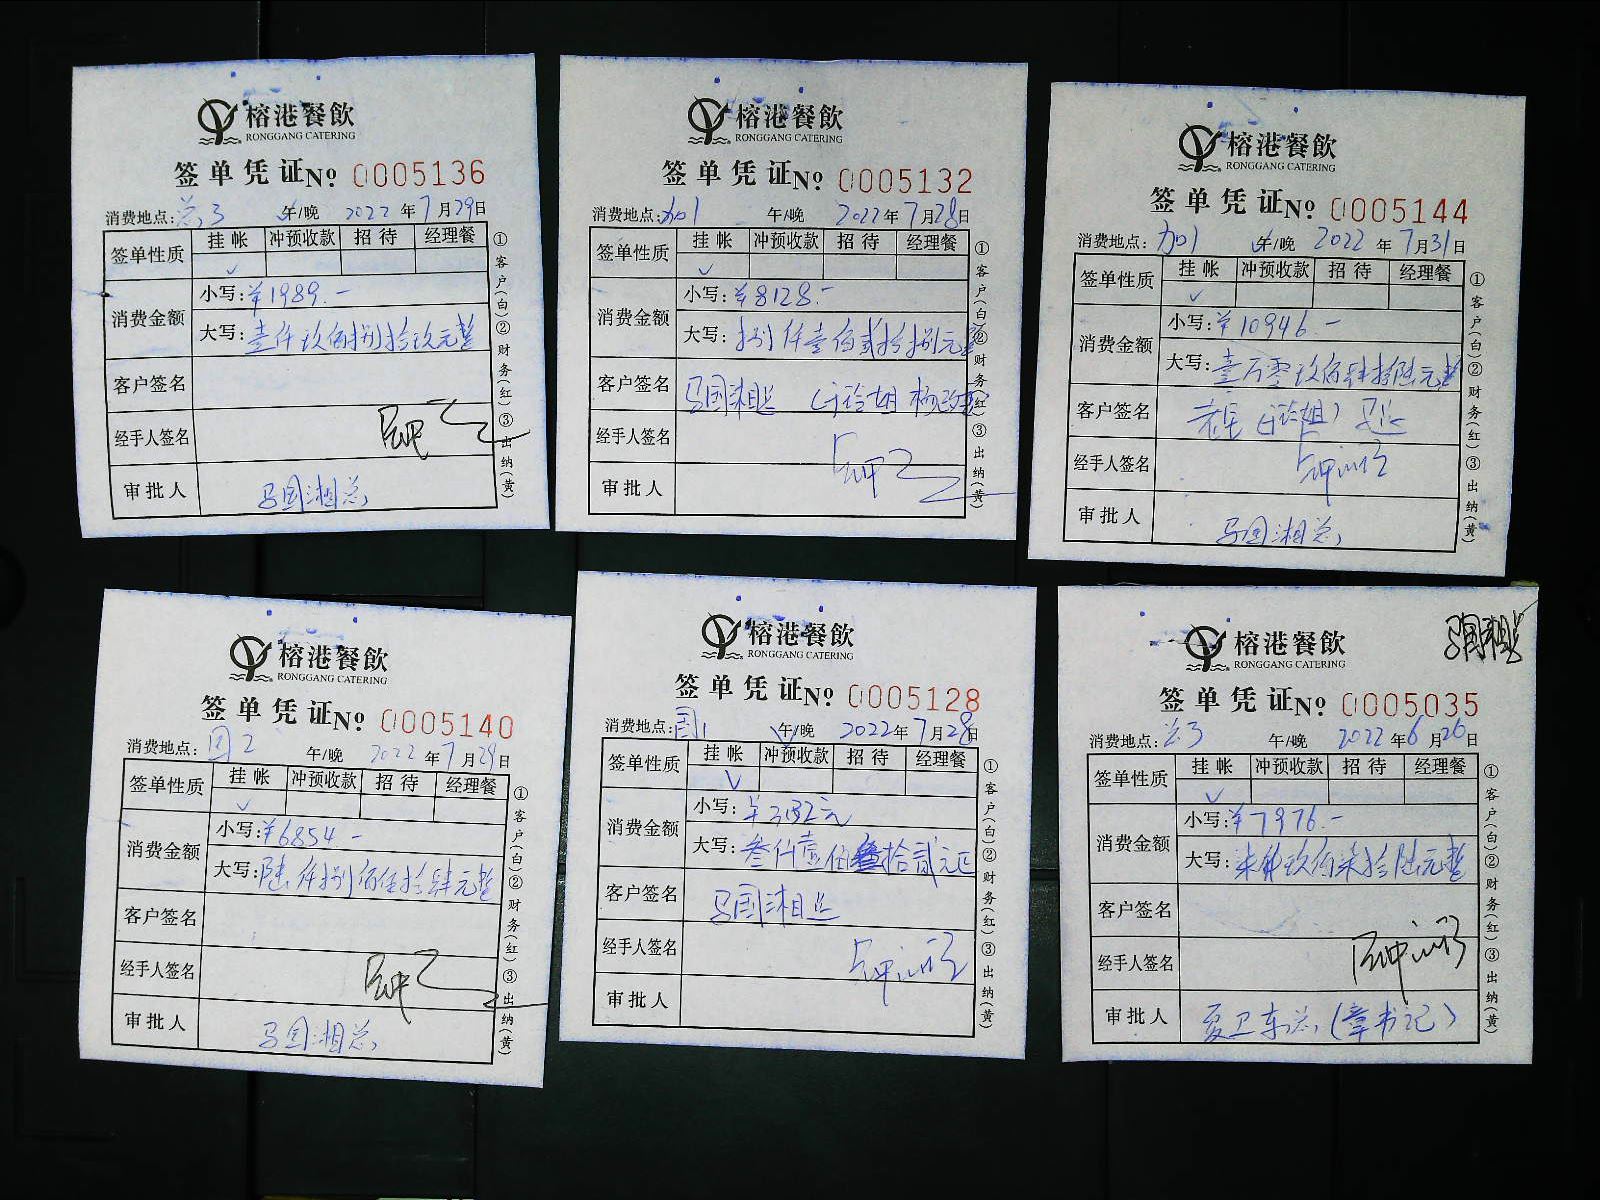 榕港餐飲
RONGGANG CATERING
签单凭证No 0005136
消费地点:总3 午/晚 2022年7月29日
签单性质 挂帐 冲预收款 招待 经理餐
✓
消费金额 小写:¥1989.-
大写:壹仟玖佰捌拾玖元整
客户签名
经手人签名
审批人 马国湘总
①客户(白)②财务(红)③出纳(黄)
榕港餐飲
RONGGANG CATERING
签单凭证No 0005132
消费地点:加1 午/晚 2022年7月28日
签单性质 挂帐 冲预收款 招待 经理餐
✓
消费金额 小写:¥8128.-
大写:捌仟壹佰贰拾捌元整
客户签名 马国湘总
经手人签名
审批人
①客户(白)②财务(红)③出纳(黄)
榕港餐飲
RONGGANG CATERING
签单凭证No 0005144
消费地点:加1 午/晚 2022年7月31日
签单性质 挂帐 冲预收款 招待 经理餐
✓
消费金额 小写:¥10946.-
大写:壹万零玖佰肆拾陆元整
客户签名
经手人签名
审批人 马国湘总
①客户(白)②财务(红)③出纳(黄)
榕港餐飲
RONGGANG CATERING
签单凭证No 0005140
消费地点:国2 午/晚 2022年7月29日
签单性质 挂帐 冲预收款 招待 经理餐
✓
消费金额 小写:¥6854.-
大写:陆仟捌佰伍拾肆元整
客户签名
经手人签名
审批人 马国湘总
①客户(白)②财务(红)③出纳(黄)
榕港餐飲
RONGGANG CATERING
签单凭证No 0005128
消费地点:国1 午/晚 2022年7月28日
签单性质 挂帐 冲预收款 招待 经理餐
✓
消费金额 小写:¥3132元
大写:叁仟壹佰叁拾贰元正
客户签名 马国湘总
经手人签名
审批人
①客户(白)②财务(红)③出纳(黄)
马国湘总
榕港餐飲
RONGGANG CATERING
签单凭证No 0005035
消费地点:总3 午/晚 2022年6月26日
签单性质 挂帐 冲预收款 招待 经理餐
✓
消费金额 小写:¥7976.-
大写:柒仟玖佰柒拾陆元整
客户签名
经手人签名
审批人 夏卫东总(章书记)
①客户(白)②财务(红)③出纳(黄)